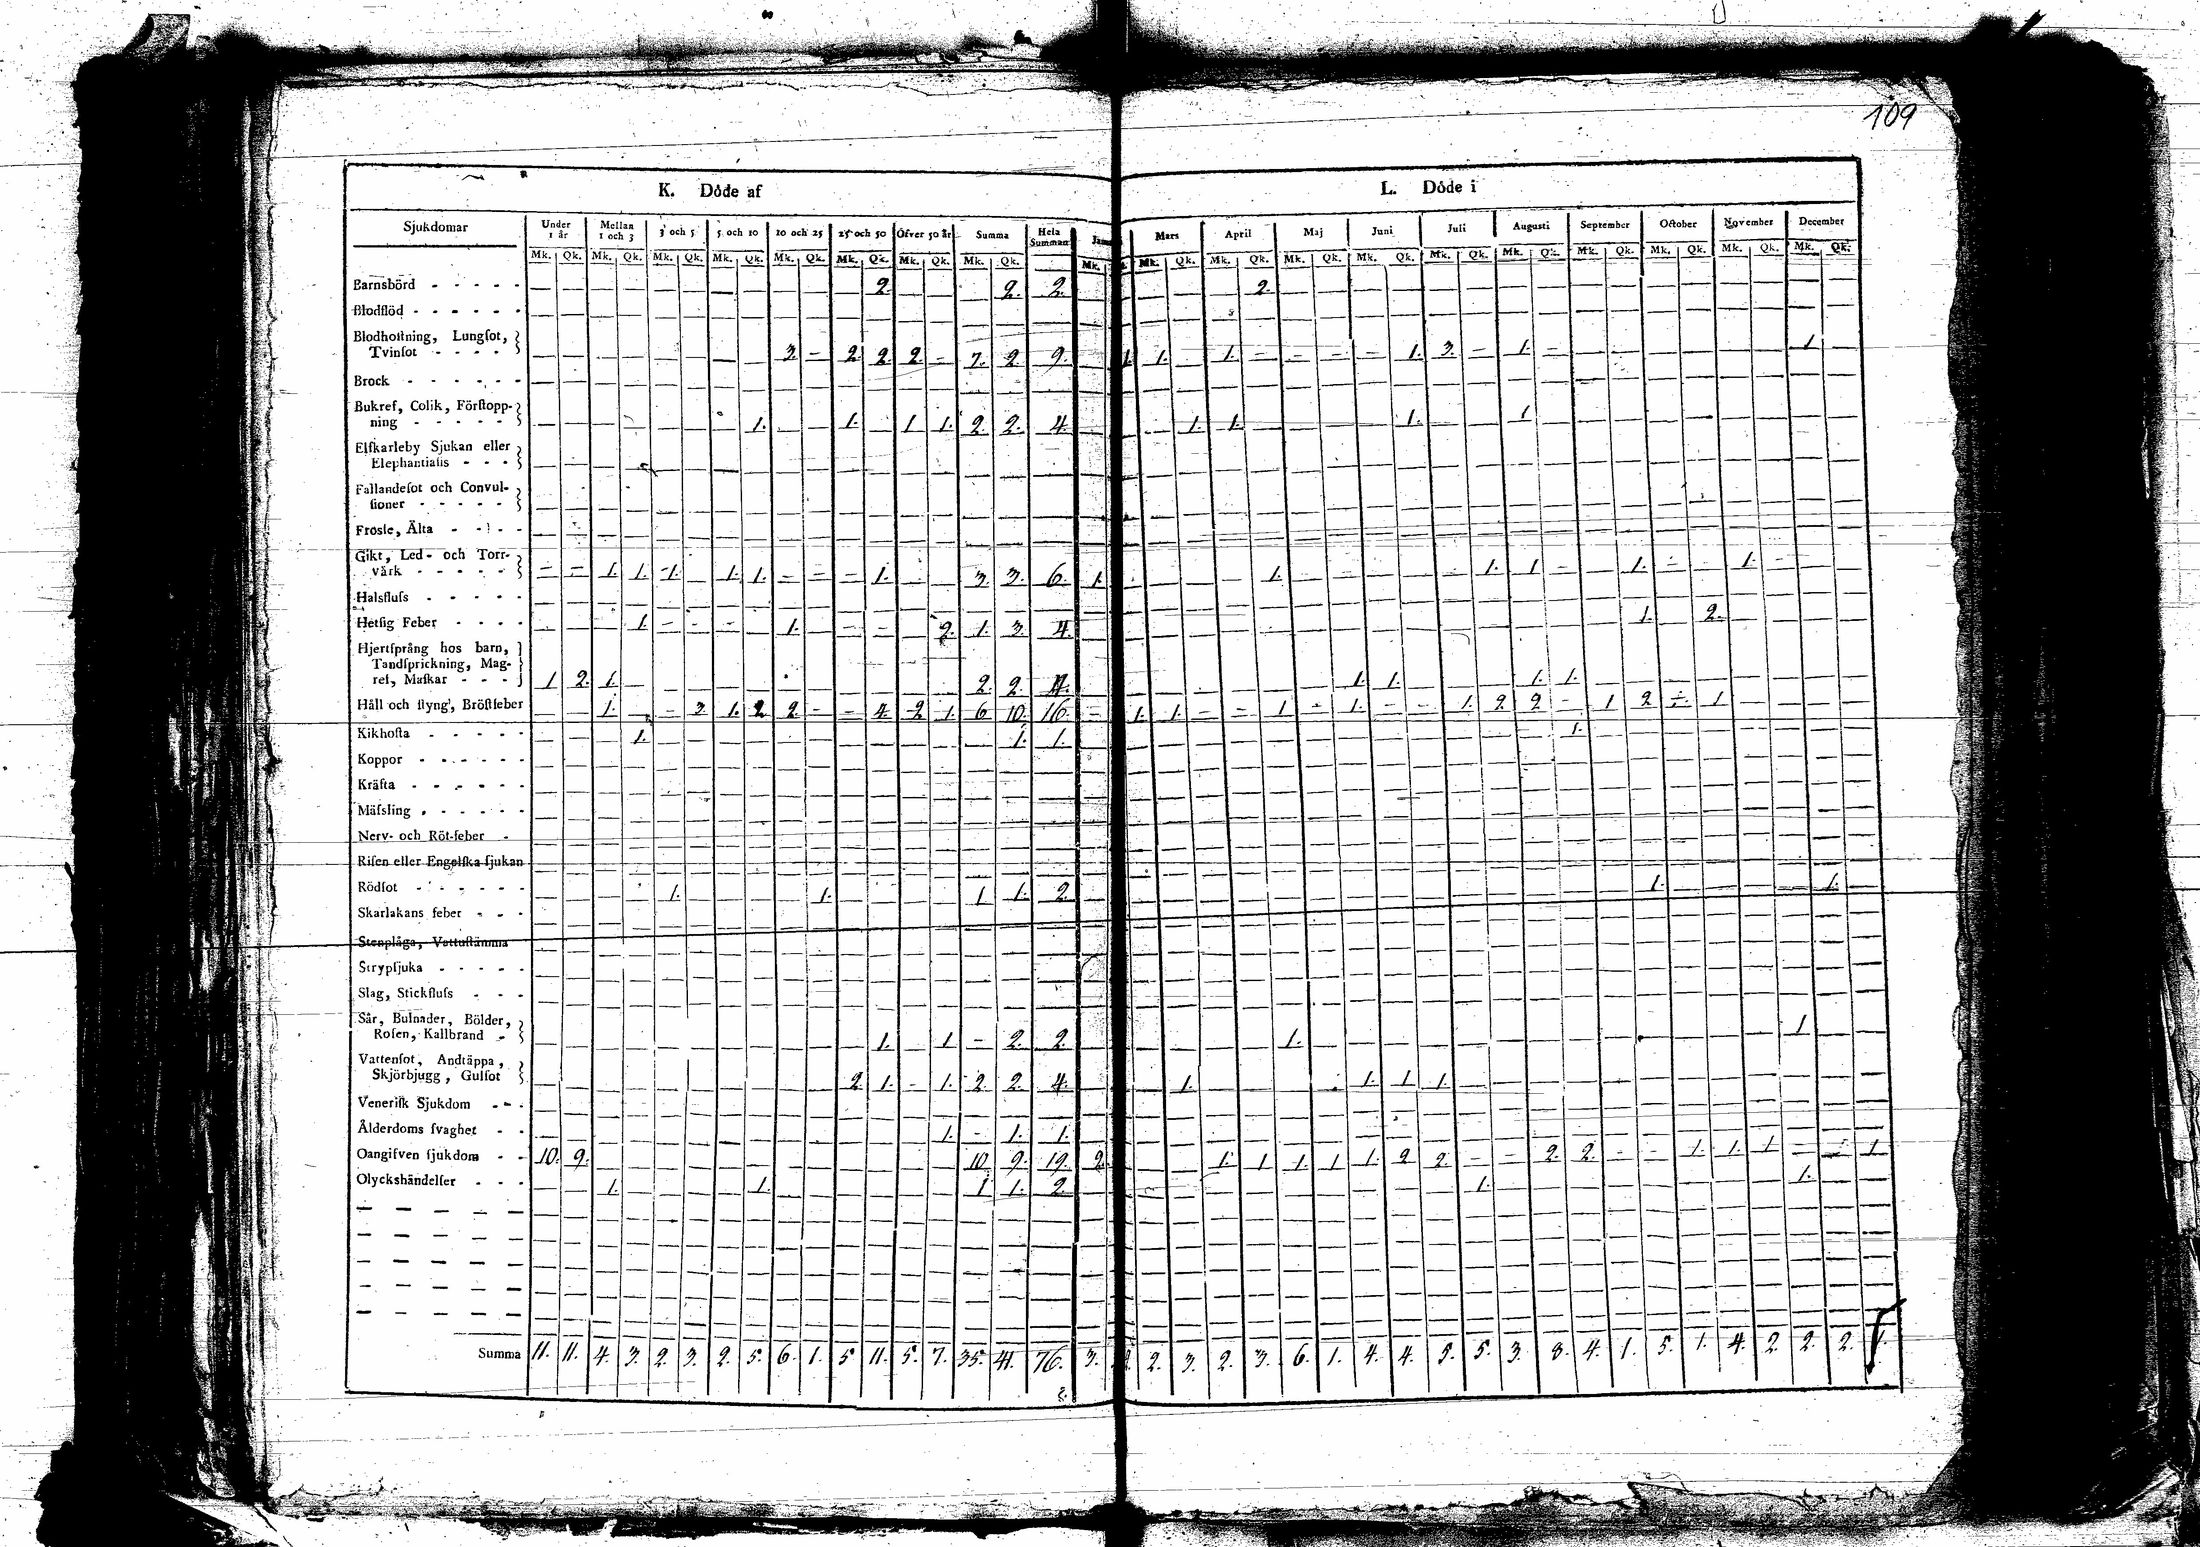 109
K. Döde af
L. Döde i
Sjukdomar Under 1 år Mellan 1 och 3 3 och 5 5 och 10 10 och 25 25 och 50 Öfver 50 år Summa Hela Summan
Mars April Maj Juni Juli Augusti September October November December
Mk. Qk. Mk. Qk. Mk. Qk. Mk. Qk. Mk. Qk. Mk. Qk. Mk. Qk. Mk. Qk. Mk.
Mk. Qk. Mk. Qk. Mk. Qk. Mk. Qk. Mk. Qk. Mk. Qk. Mk. Qk. Mk. Qk. Mk. Qk. Mk. Qk.
Barnsbörd - - - - - 2. 2. 2. 2.
Blodflöd - - - - - -
Blodhoſtning, Lungſot,
Tvinſot - - - - 3. – 2. 2. 2. – 7. 2. 9. 1. 1. 1. 1. 3. 1. 1
Brock - - - - - -
Bukref, Colik, Förſtopp-
ning - - - - - 1. 1. 1 1. 2. 2. 4. 1. 1. 1. 1
Elfkarleby Sjukan eller
Elephantiaſis - - -
Fallandeſot och Convul-
ſioner - - - - -
Frosſe, Älta - - - -
Gikt, Led- och Torr-
värk - - - - - 1. 1. 1. 1. 1. 1. 3. 3. 6. 1. 1. 1. 1 1. 1.
Halsfluſs - - - - -
Hetſig Feber - - - - 1. 1. 2. 1. 3. 4. 1. 2.
Hjertſprång hos barn,
Tandſprickning, Mag-
ref, Maſkar - - - 1 2. 1. 2. 2. 4. 1. 1. 1. 1.
Håll och ſtyng, Bröſtfeber 1. 3. 1. 2 2. 4. 2 1. 6 10. 16. 1. 1. 1 1. 1. 2. 2. 1 2 1
Kikhoſta - - - - - 1. 1. 1. 1.
Koppor - - - - - -
Kräfta - - - - - -
Mäſsling - - - - - -
Nerv- och Röt-feber -
Riſen eller Engelſka ſjukan
Rödſot - - - - - - 1. 1. 1 1. 2. 1. 1.
Skarlakans feber - - -
Stenplåga, Vattuſtämma
Strypſjuka - - - - -
Slag, Stickfluſs - - -
Sår, Bulnader, Bölder,
Roſen, Kallbrand - 1. 1 – 2. 2. 1. 1
Vattenſot, Andtäppa,
Skjörbjugg, Gulſot 2. 1. – 1. 2. 2. 4. 1. 1. 1 1.
Veneriſk Sjukdom - - -
Ålderdoms ſvaghet - - 1. – 1. 1.
Oangifven ſjukdom - - 10. 9. 10 9. 19. 2. 1. 1 1. 1 1. 2 2. 2. 2. 1. 1. 1 1
Olyckshändelſer - - - 1. 1. 1 1. 2 1. 1.
Summa 11. 11. 4. 3. 2. 3. 2. 5. 6. 1. 5 11. 5. 7. 35. 41. 76. 3. 2. 3. 2. 3. 6. 1. 4. 4. 5. 5. 3. 3. 4. 1. 5. 1. 4. 2. 2. 2. 1.